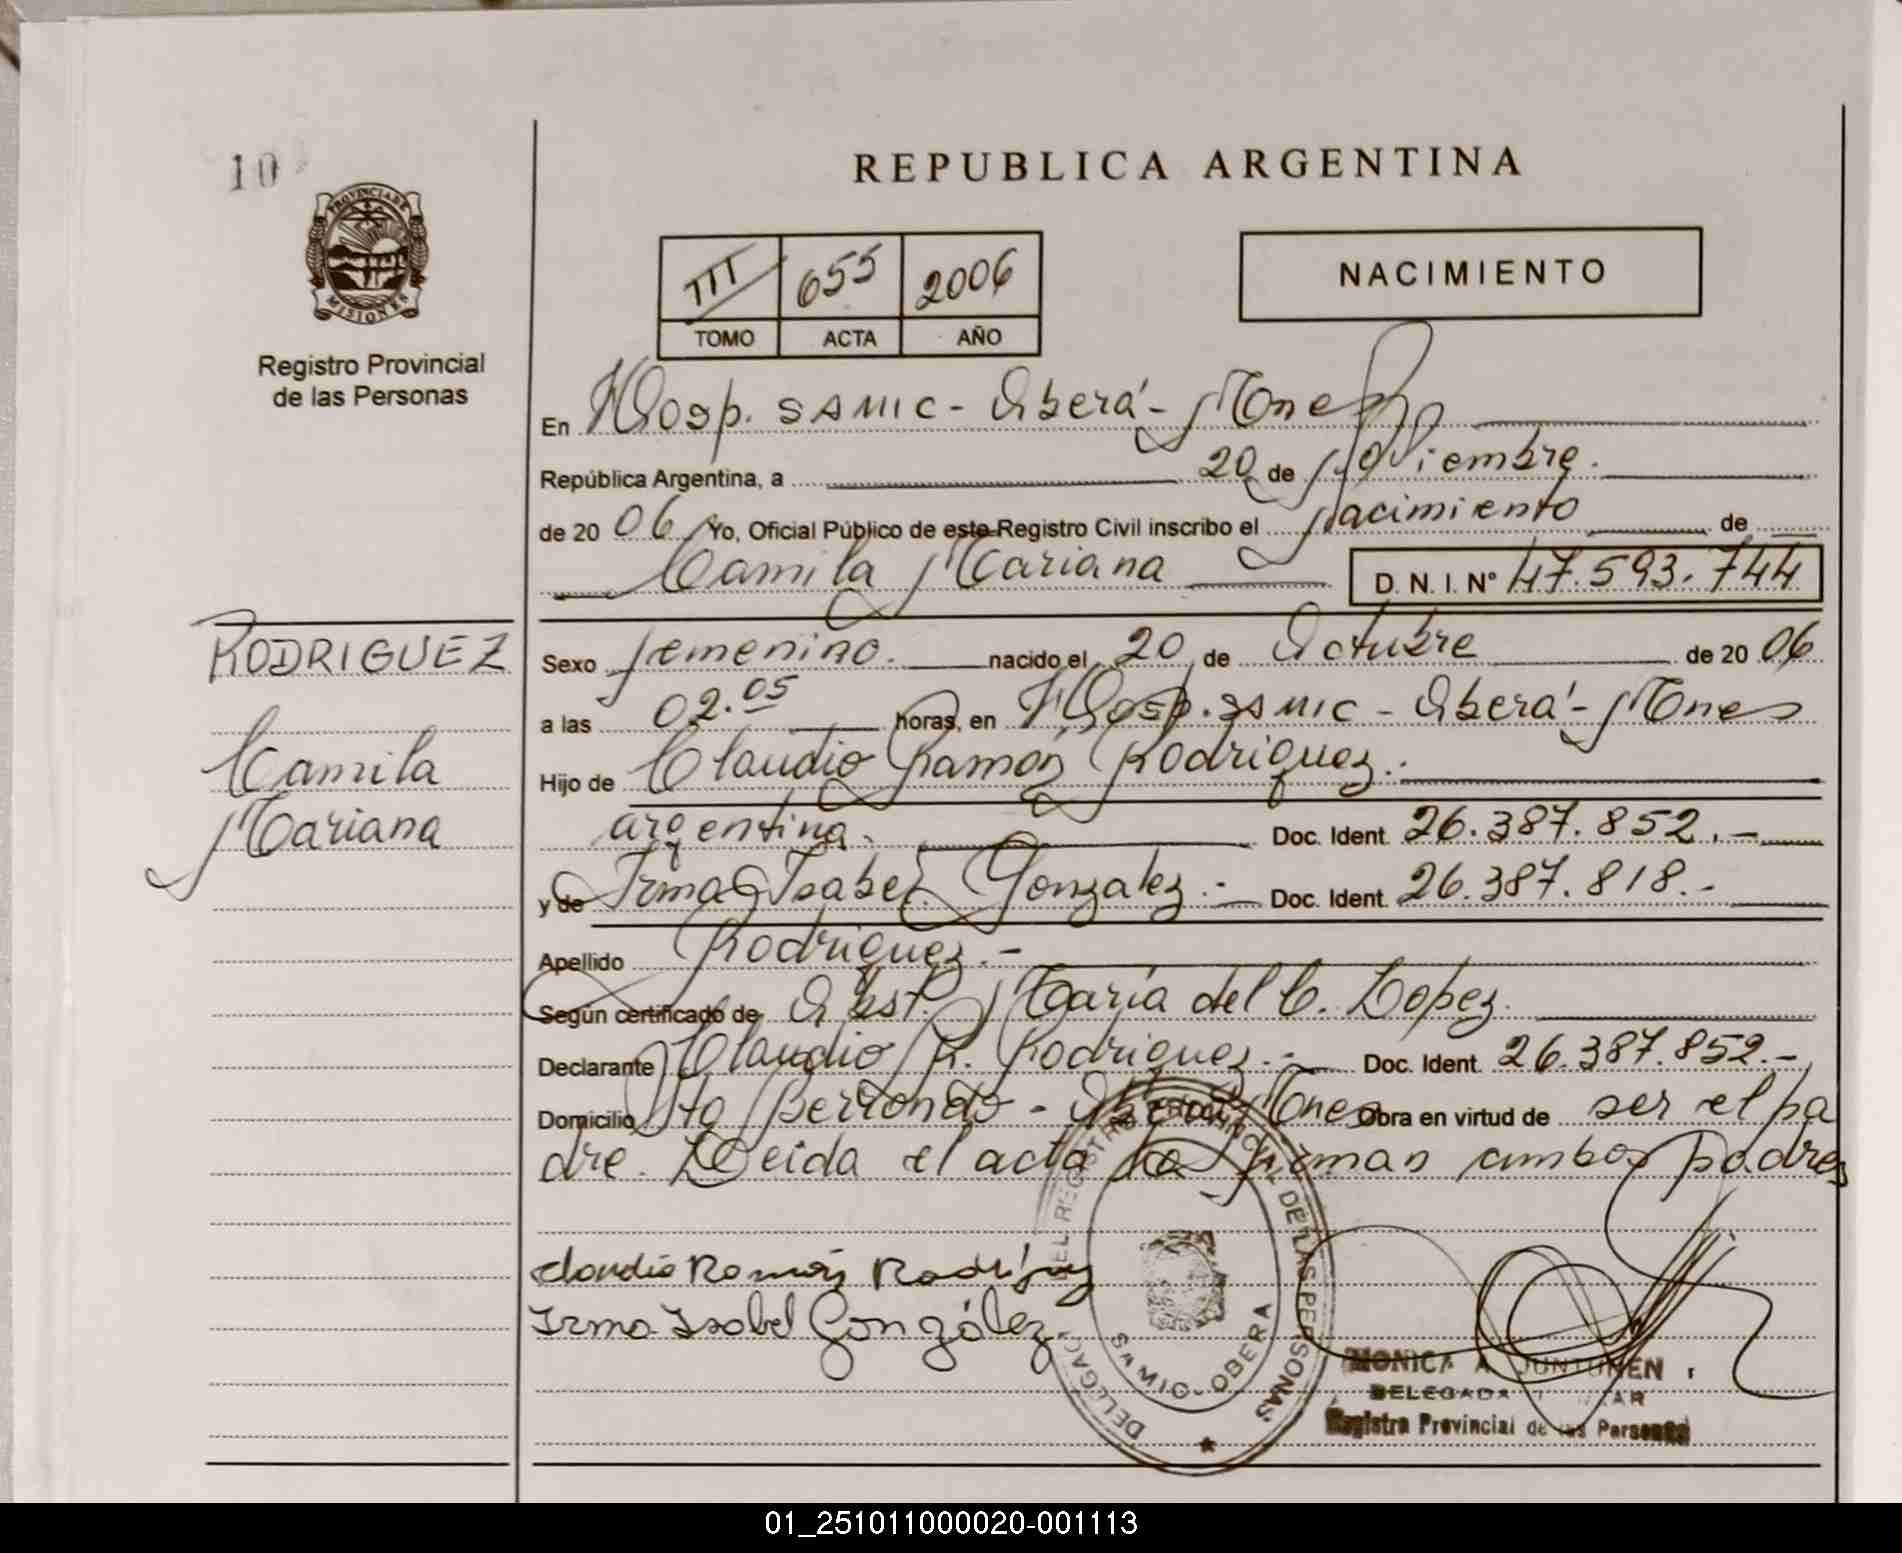 10
PROVINCIA DE
MISIONES
Registro Provincial
de las Personas
REPUBLICA ARGENTINA
III 655 2006
TOMO ACTA AÑO
NACIMIENTO
En Hosp. SAMIC - Oberá - Mnes
República Argentina, a 20 de Noviembre.
de 2006 Yo, Oficial Público de este Registro Civil inscribo el Nacimiento de
Camila Mariana D.N.I. N° 47.593.744
RODRIGUEZ
Camila
Mariana
Sexo femenino. nacido el 20 de Octubre de 2006
a las 02.05 horas, en Hosp. SAMIC - Oberá - Mnes
Hijo de Claudio Ramon Rodriguez.-
argentina. Doc. Ident. 26.387.852.-
y de Irma Isabel Gonzalez.- Doc. Ident. 26.387.818.-
Apellido Rodriguez.-
Según certificado de Obst. María del C. Lopez.
Declarante Claudio R. Rodriguez.- Doc. Ident. 26.387.852.-
Domicilio Berrondo - Oberá Mnes Obra en virtud de ser el pa
dre. Leida el acta la firman ambos padres
Claudio Ramón Rodríguez
Irma Isabel González
DEL REGISTRO PROVINCIAL DE LAS PERSONAS
OBERA
MONICA A. JUNTUNEN
DELEGADA
Registro Provincial de las Personas
01_251011000020-001113